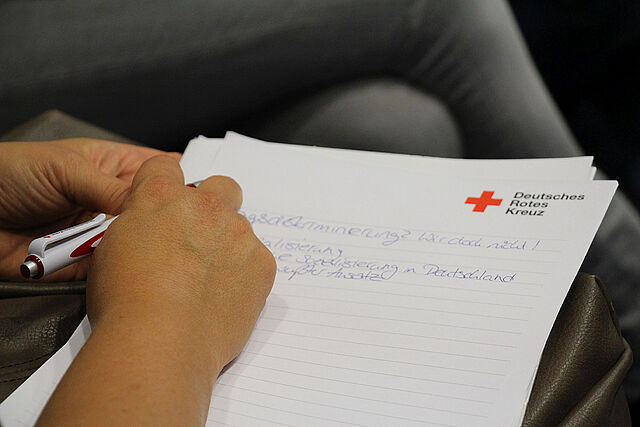 Deutsches
Rotes
Kreuz
gsdiskriminierung? Wir doch nicht!
alisierung
Sozialisierung in Deutschland
Ansatz